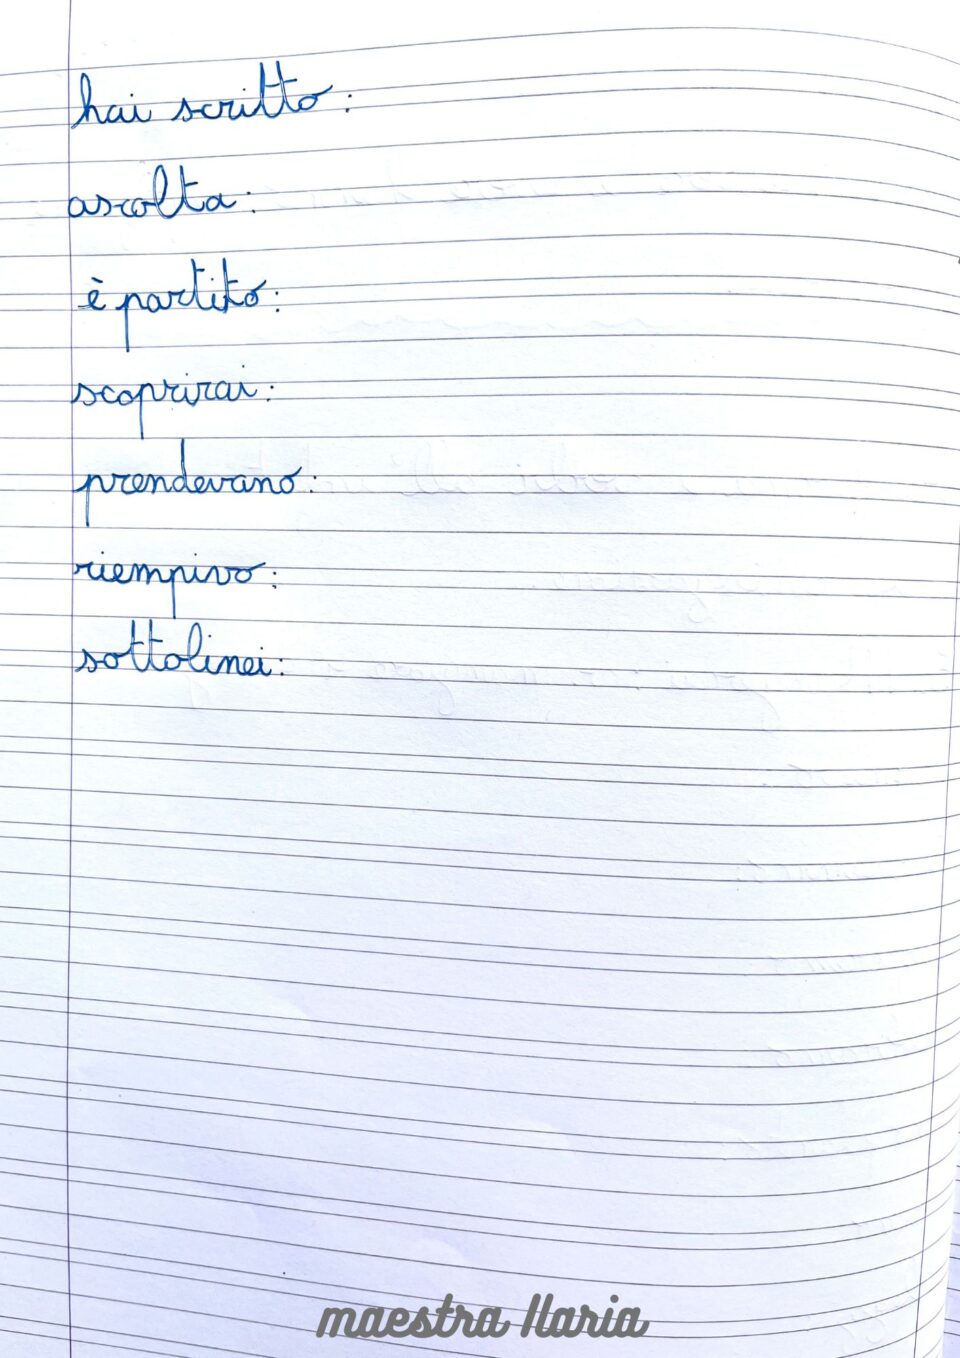 hai scritto:
ascolta:
è partito:
scoprirai:
prendevano:
riempivo:
sottolinei:
maestra Ilaria